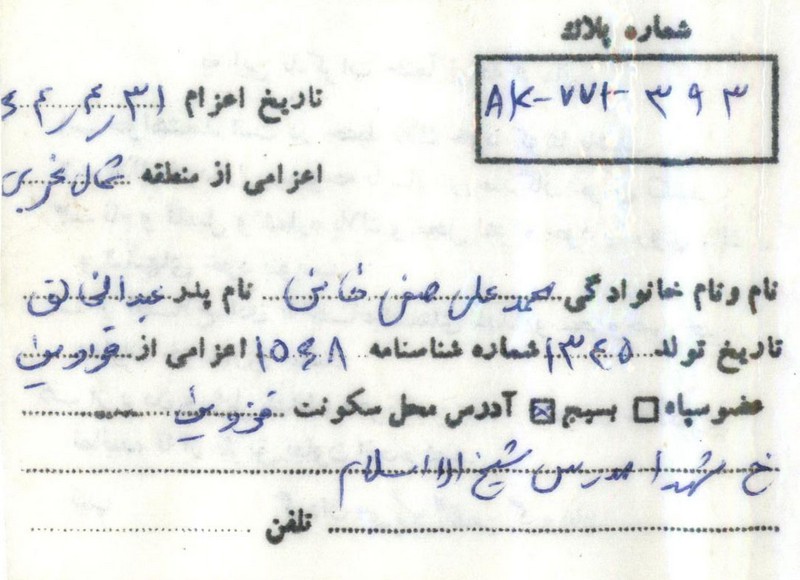 شماره پلاك
AK-۷۷۲-۳۹۳
تاریخ اعزام ۳۱ر۴ر۶۴
اعزامی از منطقه شمال غرب
نام ونام خانوادگی محمد علی صفی خانی نام پدر عبدالخالق
تاریخ تولد ۱۳۴۵ شماره شناسنامه ۱۵۴۸ اعزامی از قزوین
عضوسپاه بسیج آدرس محل سکونت قزوین
خ شهدا مدرس شیخ الاسلام
تلفن